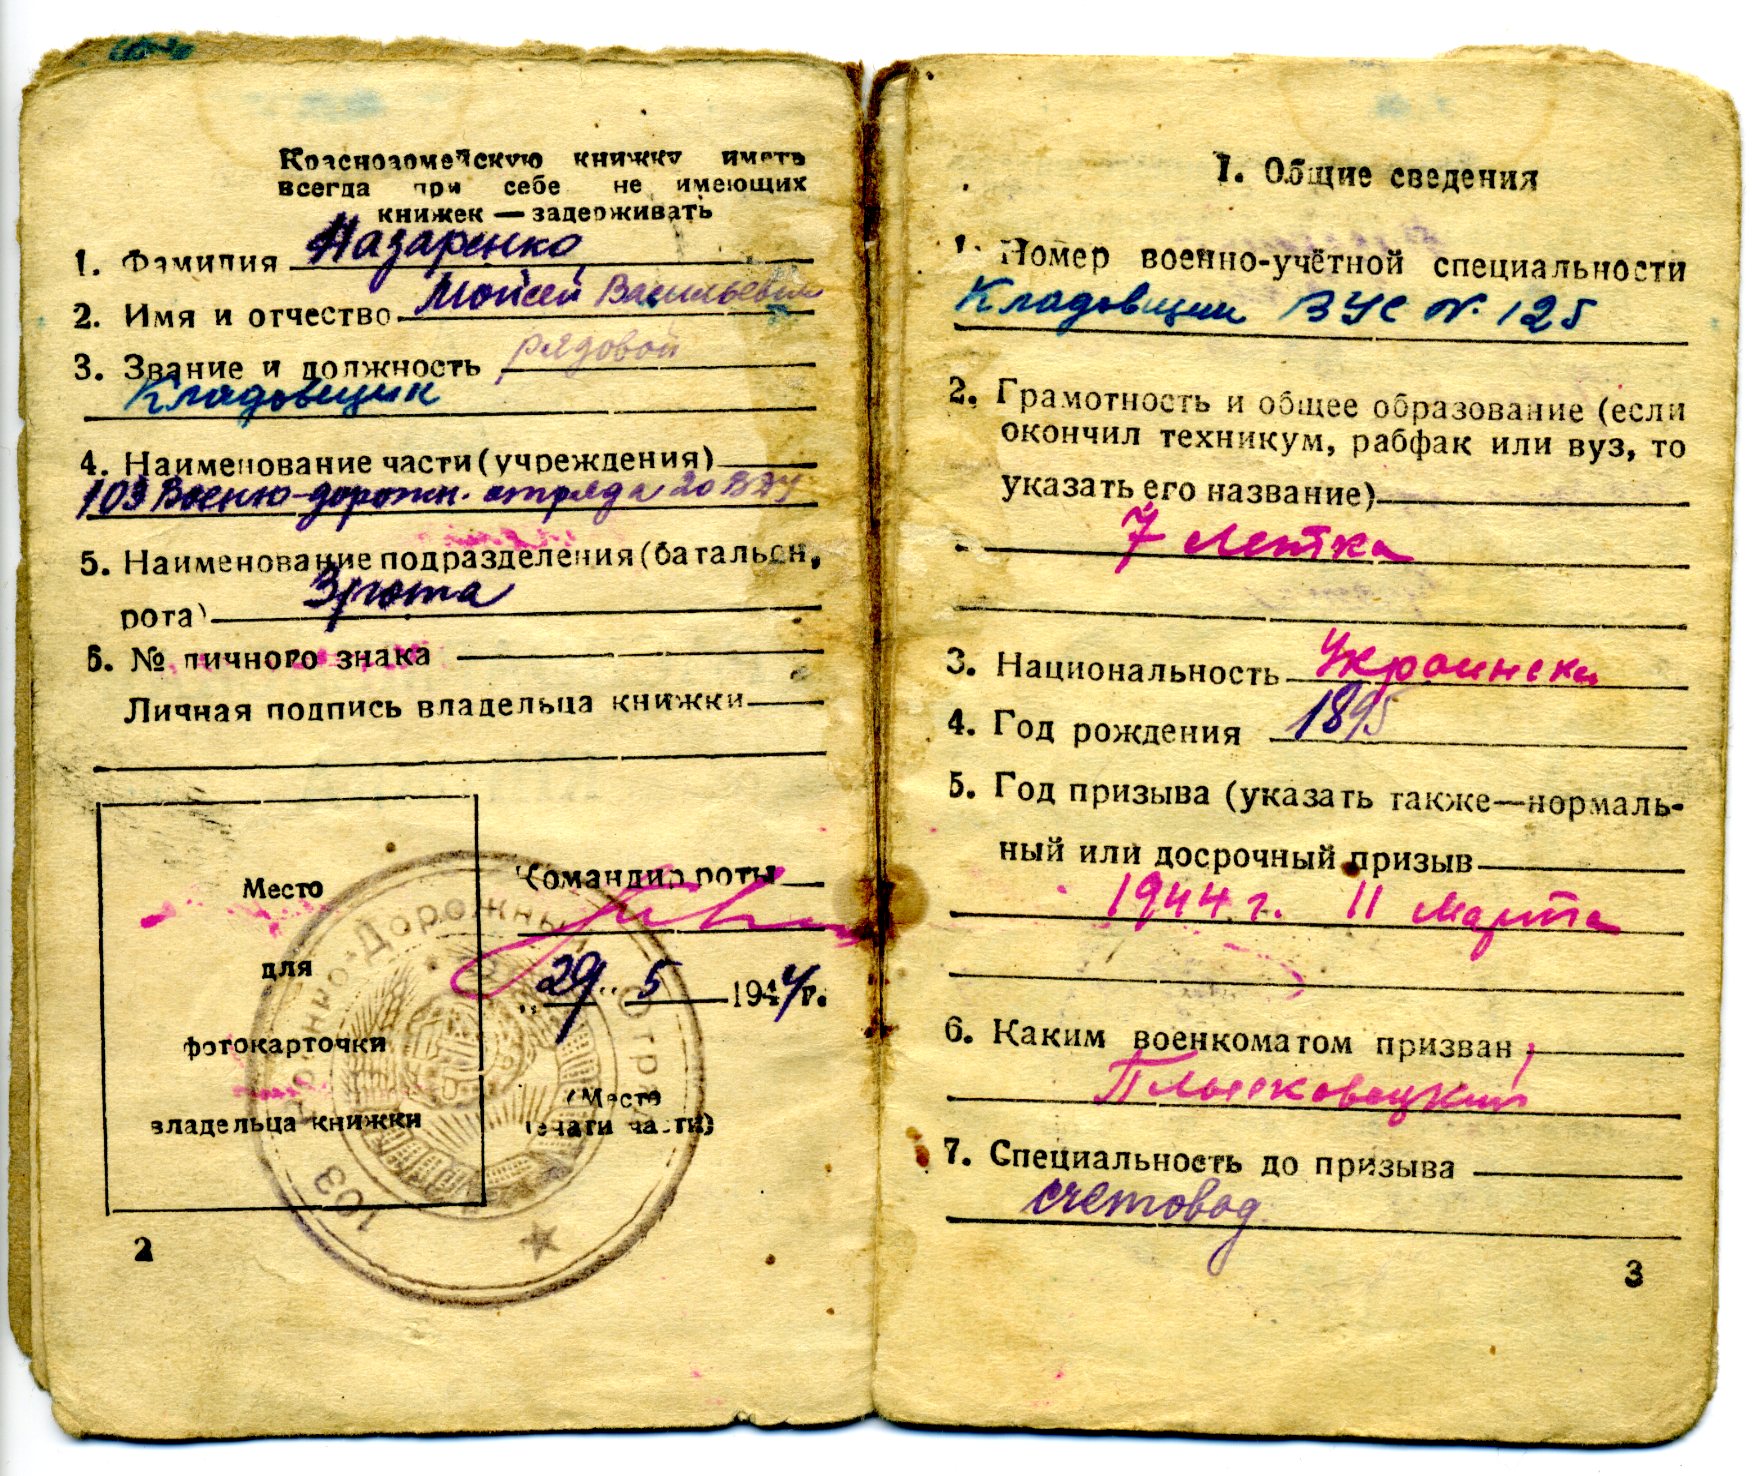 Красноармейскую книжку иметь
всегда при себе не имеющих
книжек — задерживать
1. Фамилия Назаренко
2. Имя и отчество Мойсей Васильевич
3. Звание и должность рядовой
Кладовщик
4. Наименование части (учреждения)
103 Военно-дорожн. отряда 20 ВДУ
5. Наименование подразделения (батальон,
рота) 3 рота
6. № личного знака
Личная подпись владельца книжки
Место
для
фотокарточки
владельца книжки
Командир роты
„29“ 5 1944 г.
(Место
печати части)
103 Военно-Дорожный Отряд
2
I. Общие сведения
1. Номер военно-учётной специальности
Кладовщик ВУС № 125
2. Грамотность и общее образование (если
окончил техникум, рабфак или вуз, то
указать его название)
7 летка
3. Национальность Украинска
4. Год рождения 1895
5. Год призыва (указать также—нормаль-
ный или досрочный призыв
1944 г. 11 Марта
6. Каким военкоматом призван
7. Специальность до призыва
счетовод
3